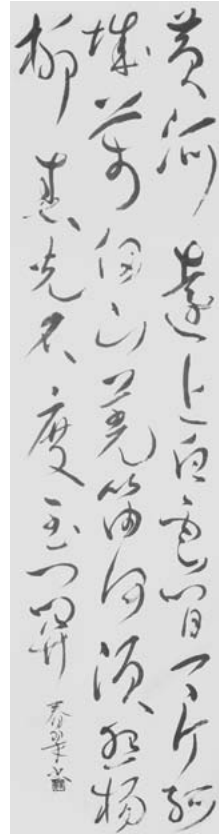 黄河遠上白雲間一片孤
城萬仞山羌笛何須怨楊
柳春光不度玉門関